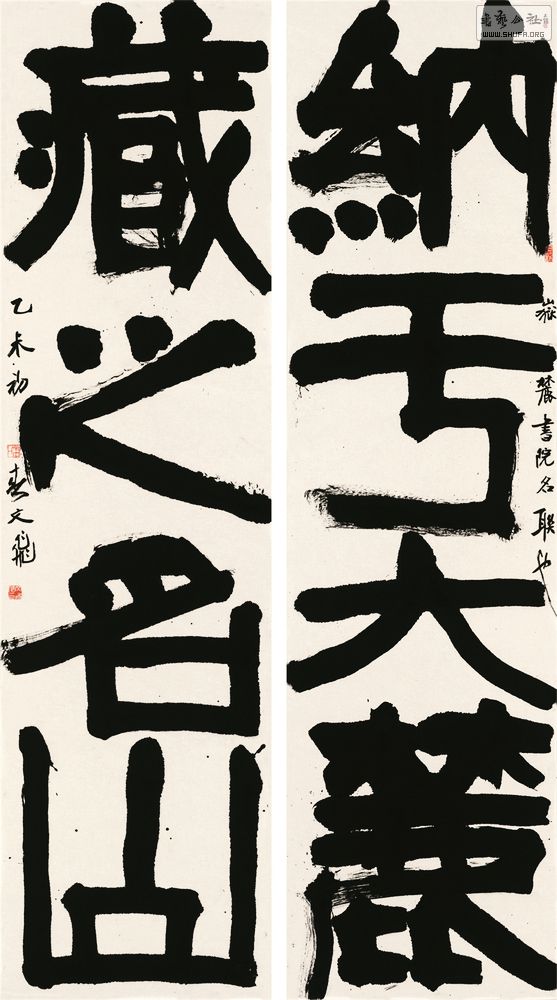 納于大麓
嶽麓書院名联也
藏之名山
乙未初春文飛
書藝公社
WWW.SHUFA.ORG